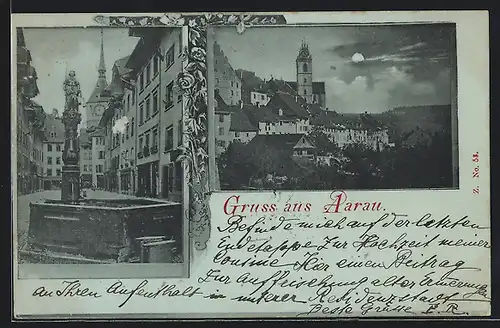 Gruss aus Aarau.
Z. No. 53.
Befinde mich auf der letzten
Endetappe zur Hochzeit meiner
Cousine. Hier einen Beitrag
Zur Auffrischung alter
An Ihren Aufenthalt in unserer Residenzstadt
Beste Grüsse